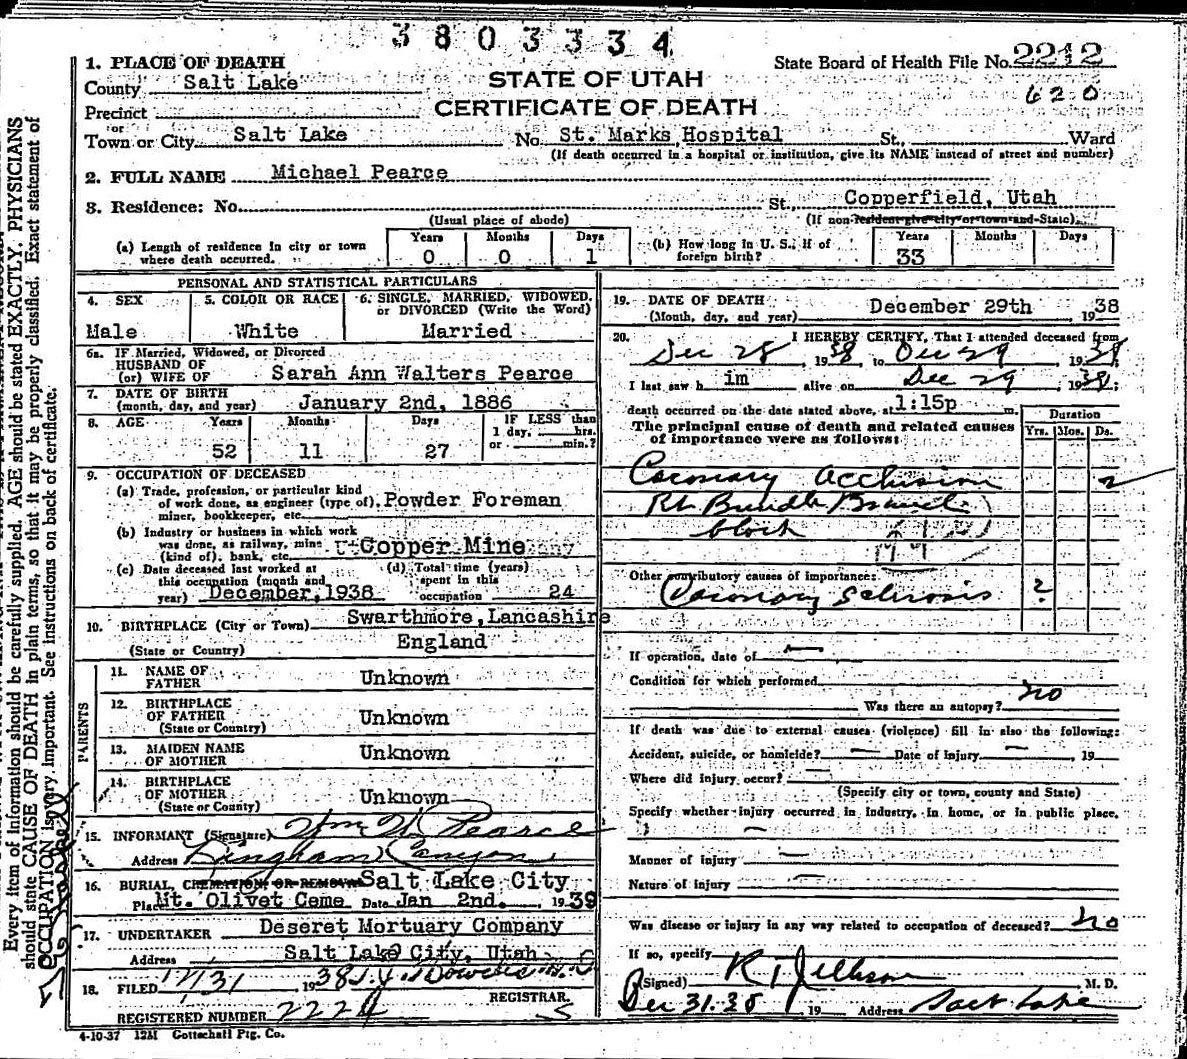 3803334
1. PLACE OF DEATH
State Board of Health File No. 2212
County Salt Lake
STATE OF UTAH
620
Precinct
CERTIFICATE OF DEATH
or
Town or City Salt Lake No. St. Marks Hospital St., Ward
(If death occurred in a hospital or institution, give its NAME instead of street and number)
2. FULL NAME Michael Pearce
3. Residence: No. St., Copperfield, Utah
(Usual place of abode) (If non-resident give city or town and State)
(a) Length of residence in city or town where death occurred. Years 0 Months 0 Days 1
(b) How long in U. S., if of foreign birth? Years 33 Months Days
PERSONAL AND STATISTICAL PARTICULARS
4. SEX Male
5. COLOR OR RACE White
6. SINGLE, MARRIED, WIDOWED, or DIVORCED (Write the Word) Married
6a. IF Married, Widowed, or Divorced
HUSBAND OF
(or) WIFE OF Sarah Ann Walters Pearce
7. DATE OF BIRTH
(month, day, and year) January 2nd, 1886
8. AGE Years 52 Months 11 Days 27 IF LESS than 1 day, hrs. or min.?
9. OCCUPATION OF DECEASED
(a) Trade, profession, or particular kind
of work done, as engineer (type of), Powder Foreman
miner, bookkeeper, etc.
(b) Industry or business in which work
was done, as railway, mine Copper Mine
(kind of), bank, etc.
(c) Date deceased last worked at
this occupation (month and
year) December, 1938
(d) Total time (years)
spent in this
occupation 24
10. BIRTHPLACE (City or Town) Swarthmore, Lancashire
(State or Country) England
PARENTS
11. NAME OF FATHER Unknown
12. BIRTHPLACE OF FATHER (State or Country) Unknown
13. MAIDEN NAME OF MOTHER Unknown
14. BIRTHPLACE OF MOTHER (State or County) Unknown
15. INFORMANT (Signature) Wm H. Pearce
Address Bingham Canyon
16. BURIAL, CREMATION, OR REMOVAL Salt Lake City
Place Mt. Olivet Ceme Date Jan 2nd. 1939
17. UNDERTAKER Deseret Mortuary Company
Address Salt Lake City, Utah
18. FILED 12/31 1938
REGISTRAR.
REGISTERED NUMBER 2224
4-10-37 12M Gottschall Ptg. Co.
19. DATE OF DEATH
(Month, day, and year) December 29th 1938
20. I HEREBY CERTIFY, That I attended deceased from
Dec 28, 1938 to Dec 29, 1938
I last saw him alive on Dec 29, 1938;
death occurred on the date stated above, at 1:15p m.
Duration
The principal cause of death and related causes Yrs. Mos. Ds.
of importance were as follows:
Coronary Occlusion 2
Rt. Bundle Branch
block
Other contributory causes of importance:
Coronary Sclerosis 2
If operation, date of —
Condition for which performed
Was there an autopsy? no
If death was due to external causes (violence) fill in also the following:
Accident, suicide, or homicide? — Date of injury — , 19
Where did injury occur? —
(Specify city or town, county and State)
Specify whether injury occurred in industry, in home, or in public place.
—
Manner of injury —
Nature of injury —
Was disease or injury in any way related to occupation of deceased? no
If so, specify
(Signed) M. D.
Dec 31-38 19 Address Salt Lake
Every item of information should be carefully supplied. AGE should be stated EXACTLY. PHYSICIANS
should state CAUSE OF DEATH in plain terms, so that it may be properly classified. Exact statement of
OCCUPATION is very important. See instructions on back of certificate.